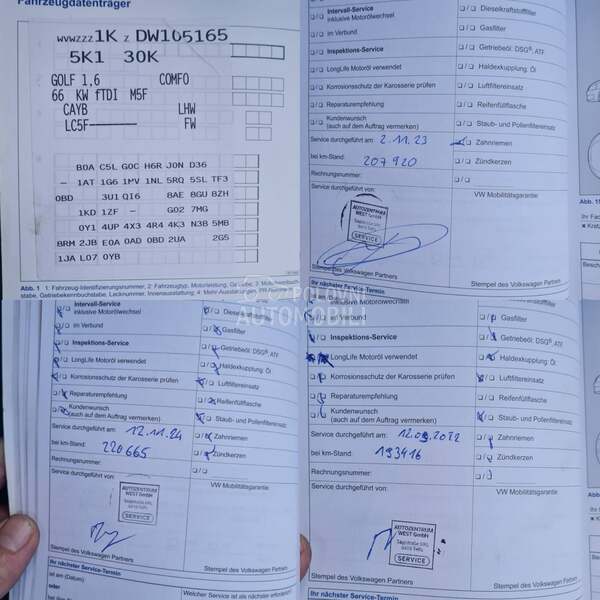 Fahrzeugdatenträger
WVWZZZ 1K Z DW105165
5K1 30K
GOLF 1,6 COMFO
66 KW fTDI M5F
CAYB LHW
LC5F------- FW
B0A C5L G0C H6R J0N D36
- 1AT 1G6 1MV 1NL 5RQ 5SL TF3
0BD 3U1 QI6 8AE 8GU 8ZH
1KD 1ZF - G02 7MG
0Y1 4UP 4X3 4R4 4K3 N3B 5MB
8RM 2JB E0A 0AD 0BD 2UA 2G5
1JA L07 0YB
Intervall-Service
inklusive Motorölwechsel
im Verbund
Inspektions-Service
LongLife Motoröl verwendet
Korrosionsschutz der Karosserie prüfen
Reparaturempfehlung
Kundenwunsch
(auch auf dem Auftrag vermerken)
Service durchgeführt am: 2.11.23
bei km-Stand: 207920
Rechnungsnummer:
Service durchgeführt von:
AUTOZENTRUM
WEST GmbH
SERVICE
Stempel des Volkswagen Partners
Ihr nächster Service-Termin
Dieselkraftstofffilter
Gasfilter
Getriebeöl: DSG®, ATF
Haldexkupplung: Öl
Luftfiltereinsatz
Reifenfüllflasche
Staub- und Pollenfiltereinsatz
Zahnriemen
Zündkerzen
VW Mobilitätsgarantie
POLOVNI
AUTOMOBILI
Intervall-Service
inklusive Motorölwechsel
im Verbund
Inspektions-Service
LongLife Motoröl verwendet
Korrosionsschutz der Karosserie prüfen
Reparaturempfehlung
Kundenwunsch
(auch auf dem Auftrag vermerken)
Service durchgeführt am: 12.11.24
bei km-Stand: 220665
Rechnungsnummer:
Service durchgeführt von:
AUTOZENTRUM
WEST GmbH
SERVICE
Stempel des Volkswagen Partners
Ihr nächster Service-Termin
am (Datum)
oder
Welcher Service ist als nächster erforderlich
Gasfilter
Getriebeöl: DSG®, ATF
Haldexkupplung: Öl
Luftfiltereinsatz
Reifenfüllflasche
Staub- und Pollenfiltereinsatz
Zahnriemen
Zündkerzen
VW Mobilitätsgarantie
inklusive Motorölwechsel
im Verbund
Inspektions-Service
LongLife Motoröl verwendet
Korrosionsschutz der Karosserie prüfen
Reparaturempfehlung
Kundenwunsch
(auch auf dem Auftrag vermerken)
Service durchgeführt am: 12.09.2022
bei km-Stand: 193416
Rechnungsnummer:
Service durchgeführt von:
AUTOZENTRUM
WEST GmbH
SERVICE
Stempel des Volkswagen Partners
Ihr nächster Service-Termin
Gasfilter
Getriebeöl: DSG®, ATF
Haldexkupplung: Öl
Luftfiltereinsatz
Reifenfüllflasche
Staub- und Pollenfiltereinsatz
Zahnriemen
Zündkerzen
VW Mobilitätsgarantie